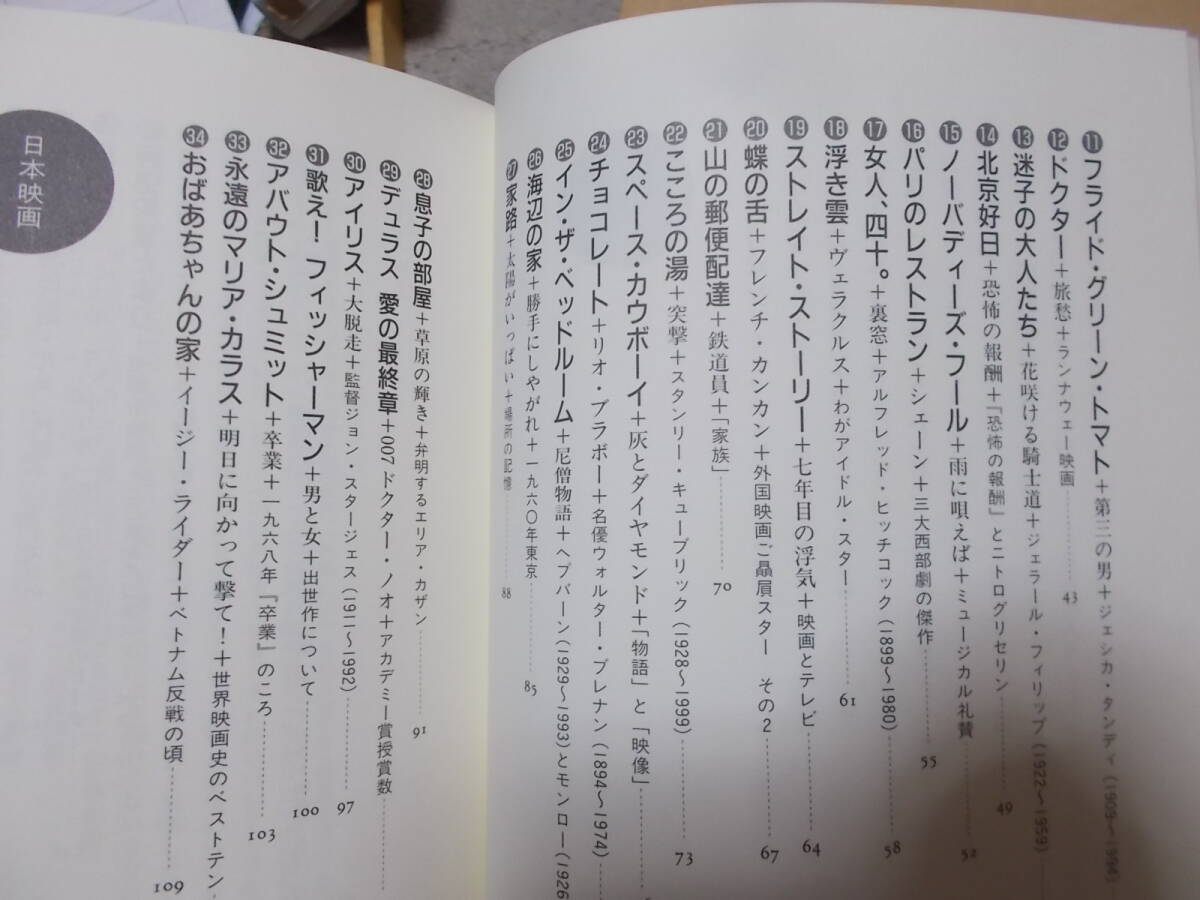 ⓫フライド・グリーン・トマト+第三の男+ジェシカ・タンディ(1909〜1994)
⓬ドクター+旅愁+ランナウェー映画 43
⓭迷子の大人たち+花咲ける騎士道+ジェラール・フィリップ(1922〜1959)
⓮北京好日+恐怖の報酬+『恐怖の報酬』とニトログリセリン 49
⓯ノーバディーズ・フール+雨に唄えば+ミュージカル礼賛 52
⓰パリのレストラン+シェーン+三大西部劇の傑作 55
⓱女人、四十。+裏窓+アルフレッド・ヒッチコック(1899〜1980) 58
⓲浮き雲+ヴェラクルス+わがアイドル・スター 61
⓳ストレイト・ストーリー+七年目の浮気+映画とテレビ 64
⓴蝶の舌+フレンチ・カンカン+外国映画ご贔屓スター その2 67
㉑山の郵便配達+鉄道員+「家族」 70
㉒こころの湯+突撃+スタンリー・キューブリック(1928〜1999) 73
㉓スペース・カウボーイ+灰とダイヤモンド+「物語」と「映像」
㉔チョコレート+リオ・ブラボー+名優ウォルター・ブレナン(1894〜1974)
㉕イン・ザ・ベッドルーム+尼僧物語+ヘプバーン(1929〜1993)とモンロー(1926
㉖海辺の家+勝手にしやがれ+一九六〇年東京 85
㉗家路+太陽がいっぱい+場所の記憶 88
㉘息子の部屋+草原の輝き+弁明するエリア・カザン 91
㉙デュラス 愛の最終章+007ドクター・ノオ+アカデミー賞授賞数
㉚アイリス+大脱走+監督ジョン・スタージェス(1911〜1992) 97
㉛歌え!フィッシャーマン+男と女+出世作について 100
㉜アバウト・シュミット+卒業+一九六八年『卒業』のころ 103
㉝永遠のマリア・カラス+明日に向かって撃て!+世界映画史のベストテン
㉞おばあちゃんの家+イージー・ライダー+ベトナム反戦の頃 109
日本映画